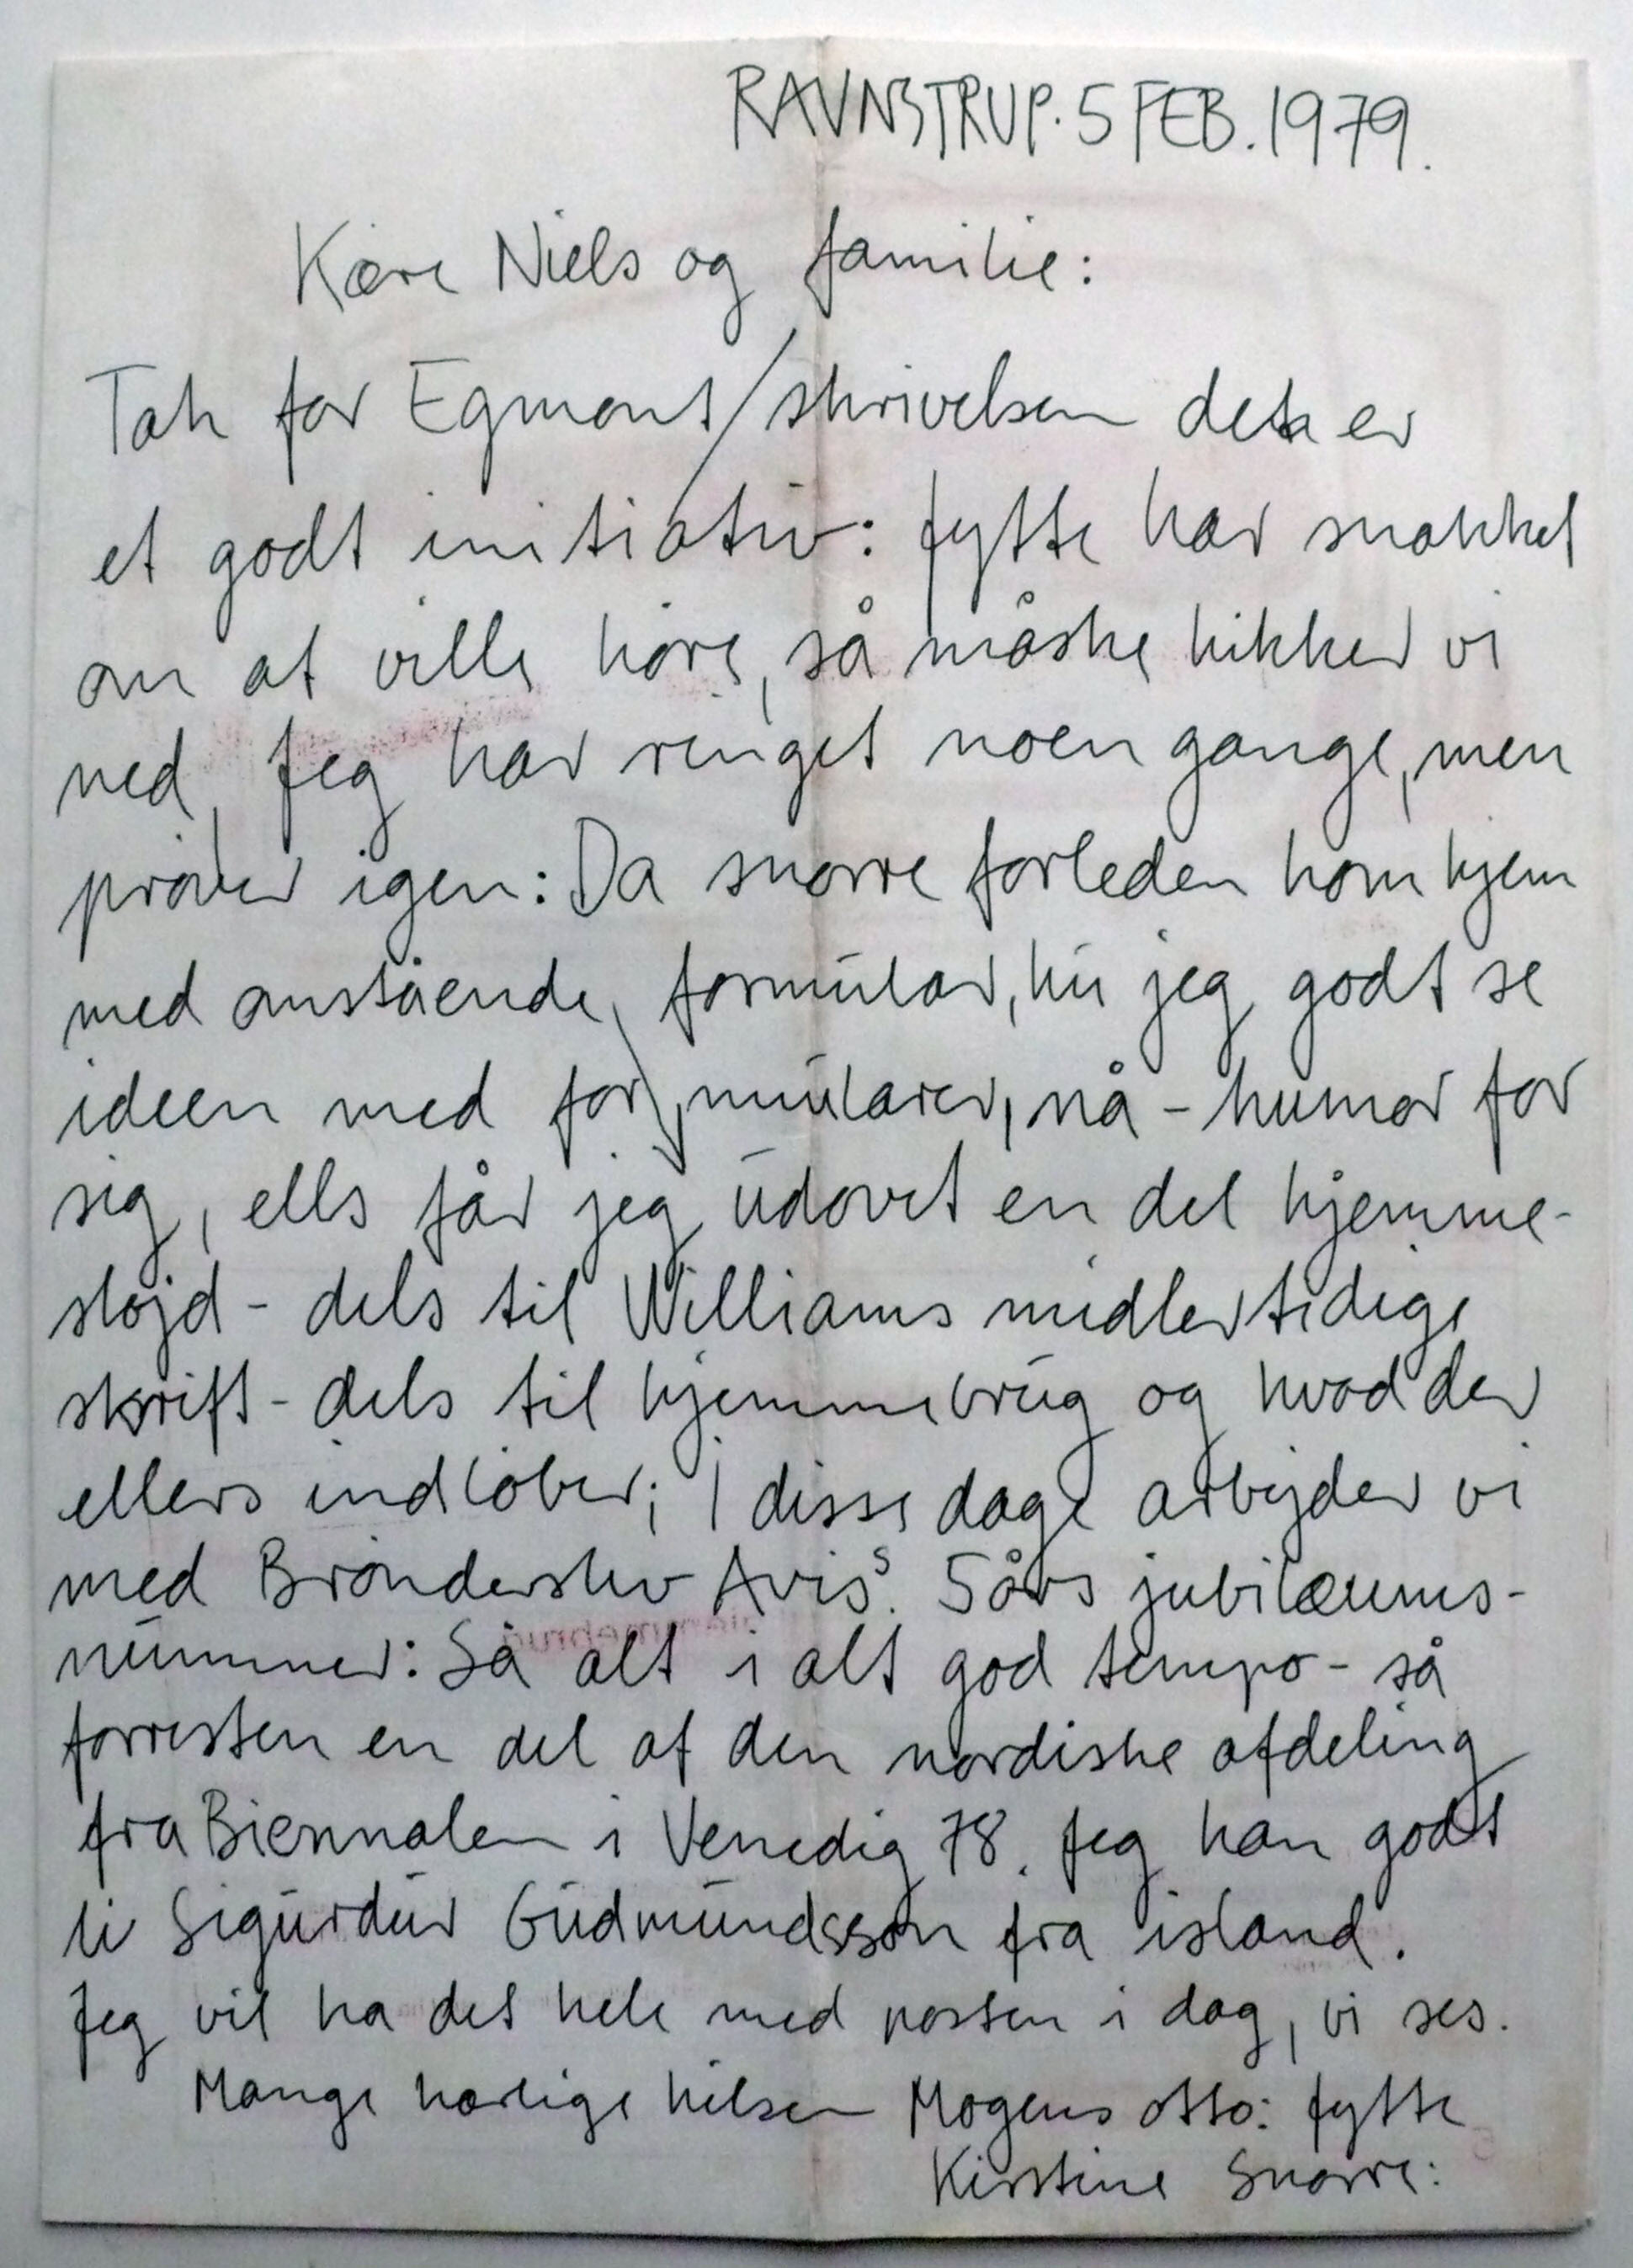 RAVNSTRUP. 5 FEB. 1979.
Kære Niels og familie:
Tak for Egmont/skrivelsen det er
et godt initiativ: Jytte har snakket
om at ville køre, så måske kikker vi
ned, Jeg har ringet noen gange, men
prøver igen: Da snorre forleden kom hjem
med omstående formular, ku jeg godt se
ideen med formularer, nå - humor for
sig, ells får jeg udøvet en del hjemme-
sløjd - dels til Williams midlertidige
skrift - dels til hjemmebrug og hvad der
ellers indløber; I disse dage arbejder vi
med Brønderslev Avis's 5års jubilæums-
nummer: Så alt i alt god tempo - så
forresten en del af den nordiske afdeling
fra Biennalen i Venedig 78. Jeg kan godt
li Sigurdur Gudmundsson fra island.
Jeg vil ha det hele med posten i dag, vi ses.
Mange kærlige hilsen Mogens otto: Jytte
Kirstine Snorre: